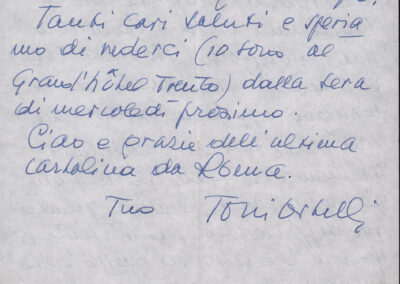 Tanti cari saluti e speria
mo di vederci (io sono al
Grand'hôtel Trento) dalla sera
di mercoledì prossimo.
Ciao e grazie dell'ultima
cartolina da Roma.
Tuo Toni Ortelli